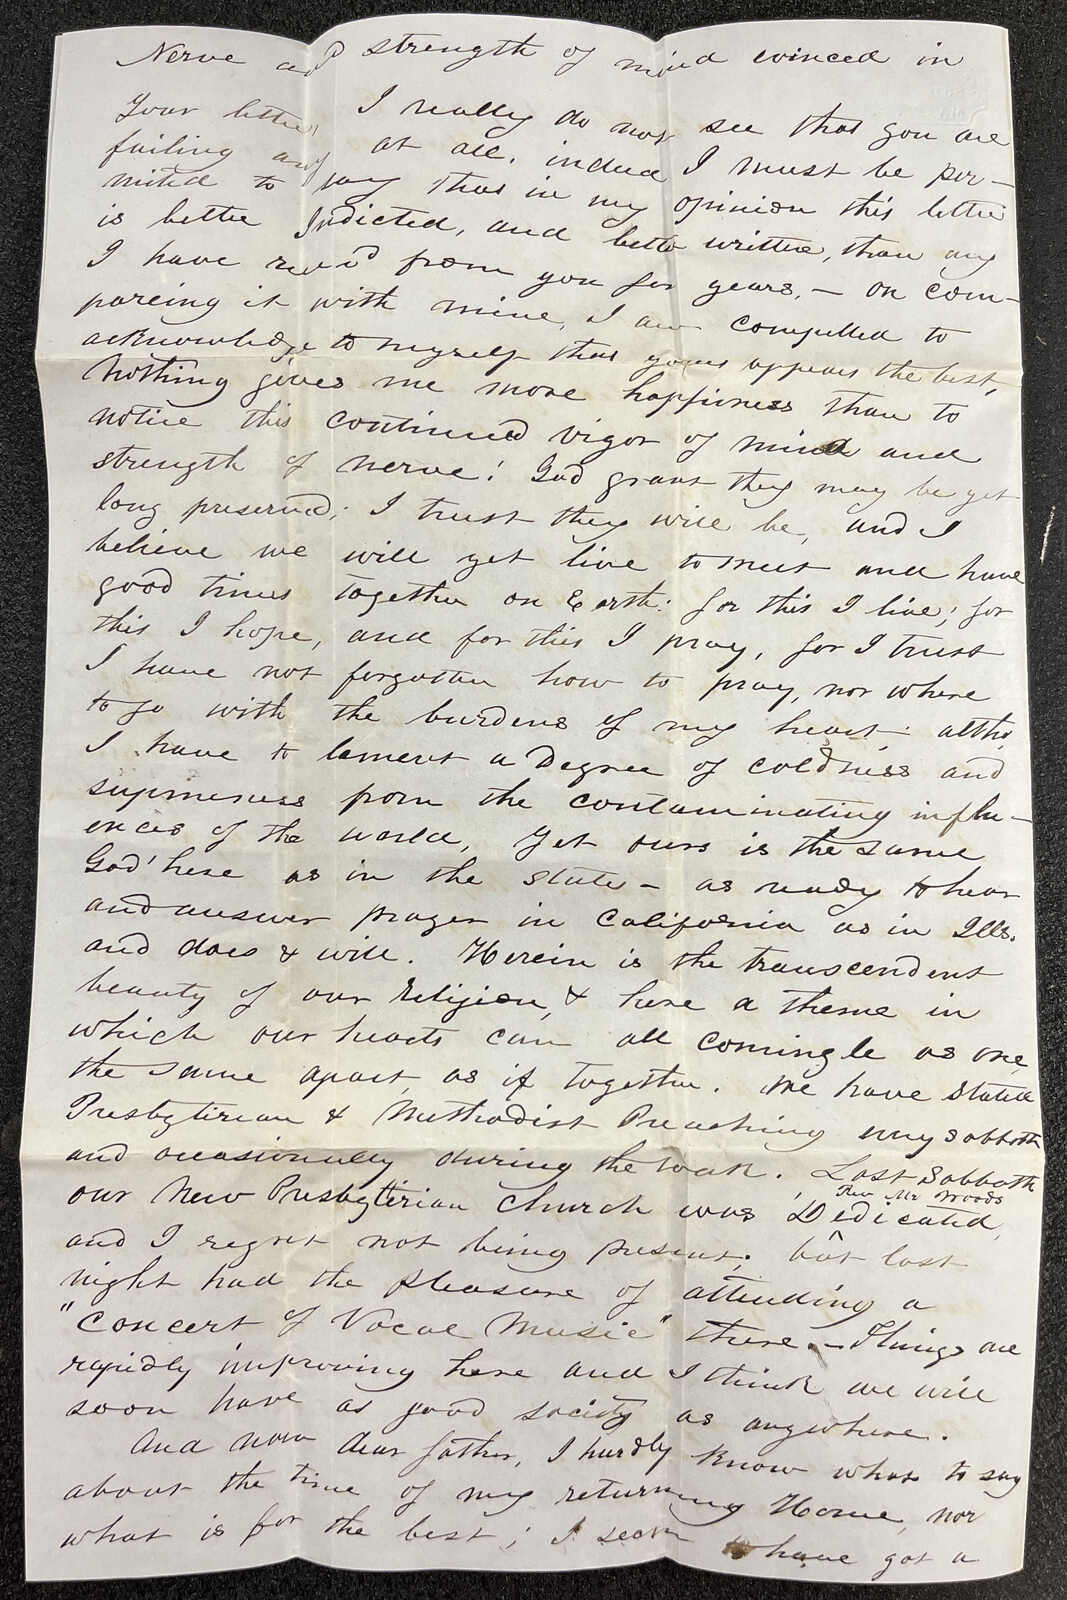 Nerve and strength of mind evinced in
Your letter I really do not see that you are
failing any at all, indeed I must be per-
mited to say that in my opinion this letter
is better Indicted, and better written, than any
I have rec'd from you for years, - on com-
pareing it with mine, I am compelled to
acknowledge to myself that yours appears the best,
Nothing gives me more happiness than to
notice this continued vigor of mind and
strength of nerve! God grant they may be yet
long preserved; I trust they will be, and I
believe we will yet live to meet and have
good times together on Earth: for this I live; for
this I hope, and for this I pray, for I trust
I have not forgotten how to pray, nor where
to go with the burdens of my heart; altho,
I have to lament a Degree of coldness and
supineness from the contaminating influ-
ences of the world, Yet ours is the same
God here as in the state - as ready to hear
and answer prayer in California as in Ills.
and does & will. Herein is the transcendent
beauty of our religion, & here a theme in
which our hearts can all comingle as one,
the same apart, as if together. We have stated
Presbyterian & Methodist Preaching every sabbath
and occasionally during the week. Last Sabbath
Rev Mr Woods
our New Presbyterian Church was Dedicated,
and I regret not being present; but last
night had the pleasure of attending a
"Concert of Vocal Music" there. - Things are
rapidly improving here and I think we will
soon have as good society as anywhere.
And now dear father, I hardly know what to say
about the time of my returning Home, nor
what is for the best; I seem to have got a